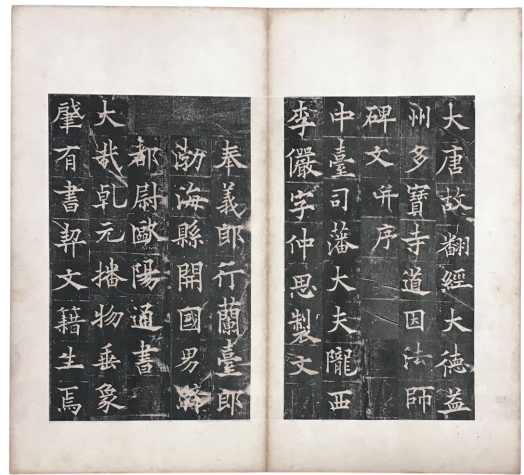 大唐故翻經大德益
州多寶寺道因法師
碑文并序
中臺司藩大夫隴西
李儼字仲思製文
奉義郎行蘭臺郎
渤海縣開國男騎
都尉歐陽通書
大哉乾元播物垂象
肇有書契文籍生焉